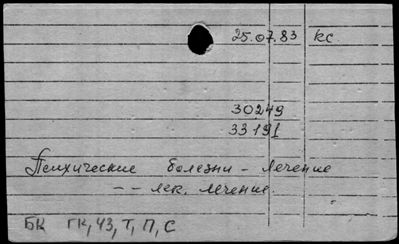 25.07.83 кс
30249
33191
Психические болезни - лечение
- - лек. лечение.
БК ГК, ЧЗ, Т, П, С